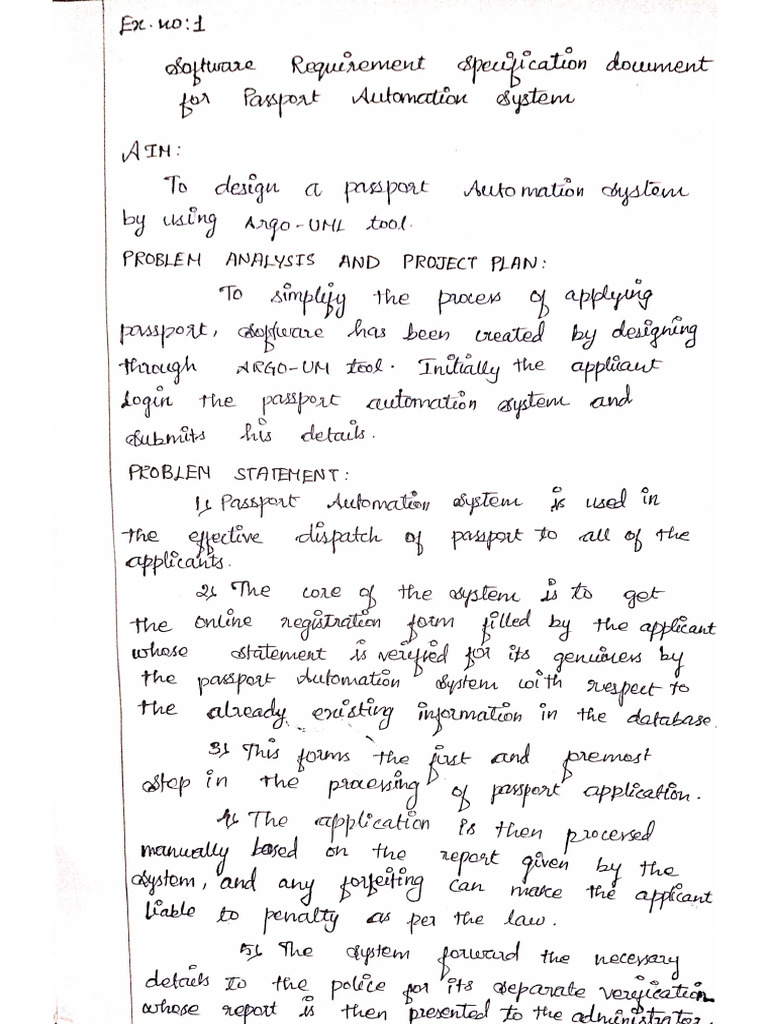 Ex.no:1
Software Requirement Specification document
for Passport Automation System
AIM:
To design a passport Automation system
by using Argo-UML tool.
PROBLEM ANALYSIS AND PROJECT PLAN:
To simplify the process of applying
passport, software has been created by designing
through ARGO-UM tool. Initially the applicant
Login the passport automation system and
submits his details.
PROBLEM STATEMENT:
1) Passport Automation system is used in
the effective dispatch of passport to all of the
applicants.
2) The core of the system is to get
the online registration form filled by the applicant
whose statement is verified for its genuiness by
the passport Automation system with respect to
the already existing information in the database.
3) This forms the first and premost
step in the processing of passport application.
4) The application is then processed
manually based on the report given by the
system, and any forfeiting can make the applicant
liable to penalty as per the law.
5) The system forward the necessary
details to the police for its separate verification
whose report is then presented to the administrator.